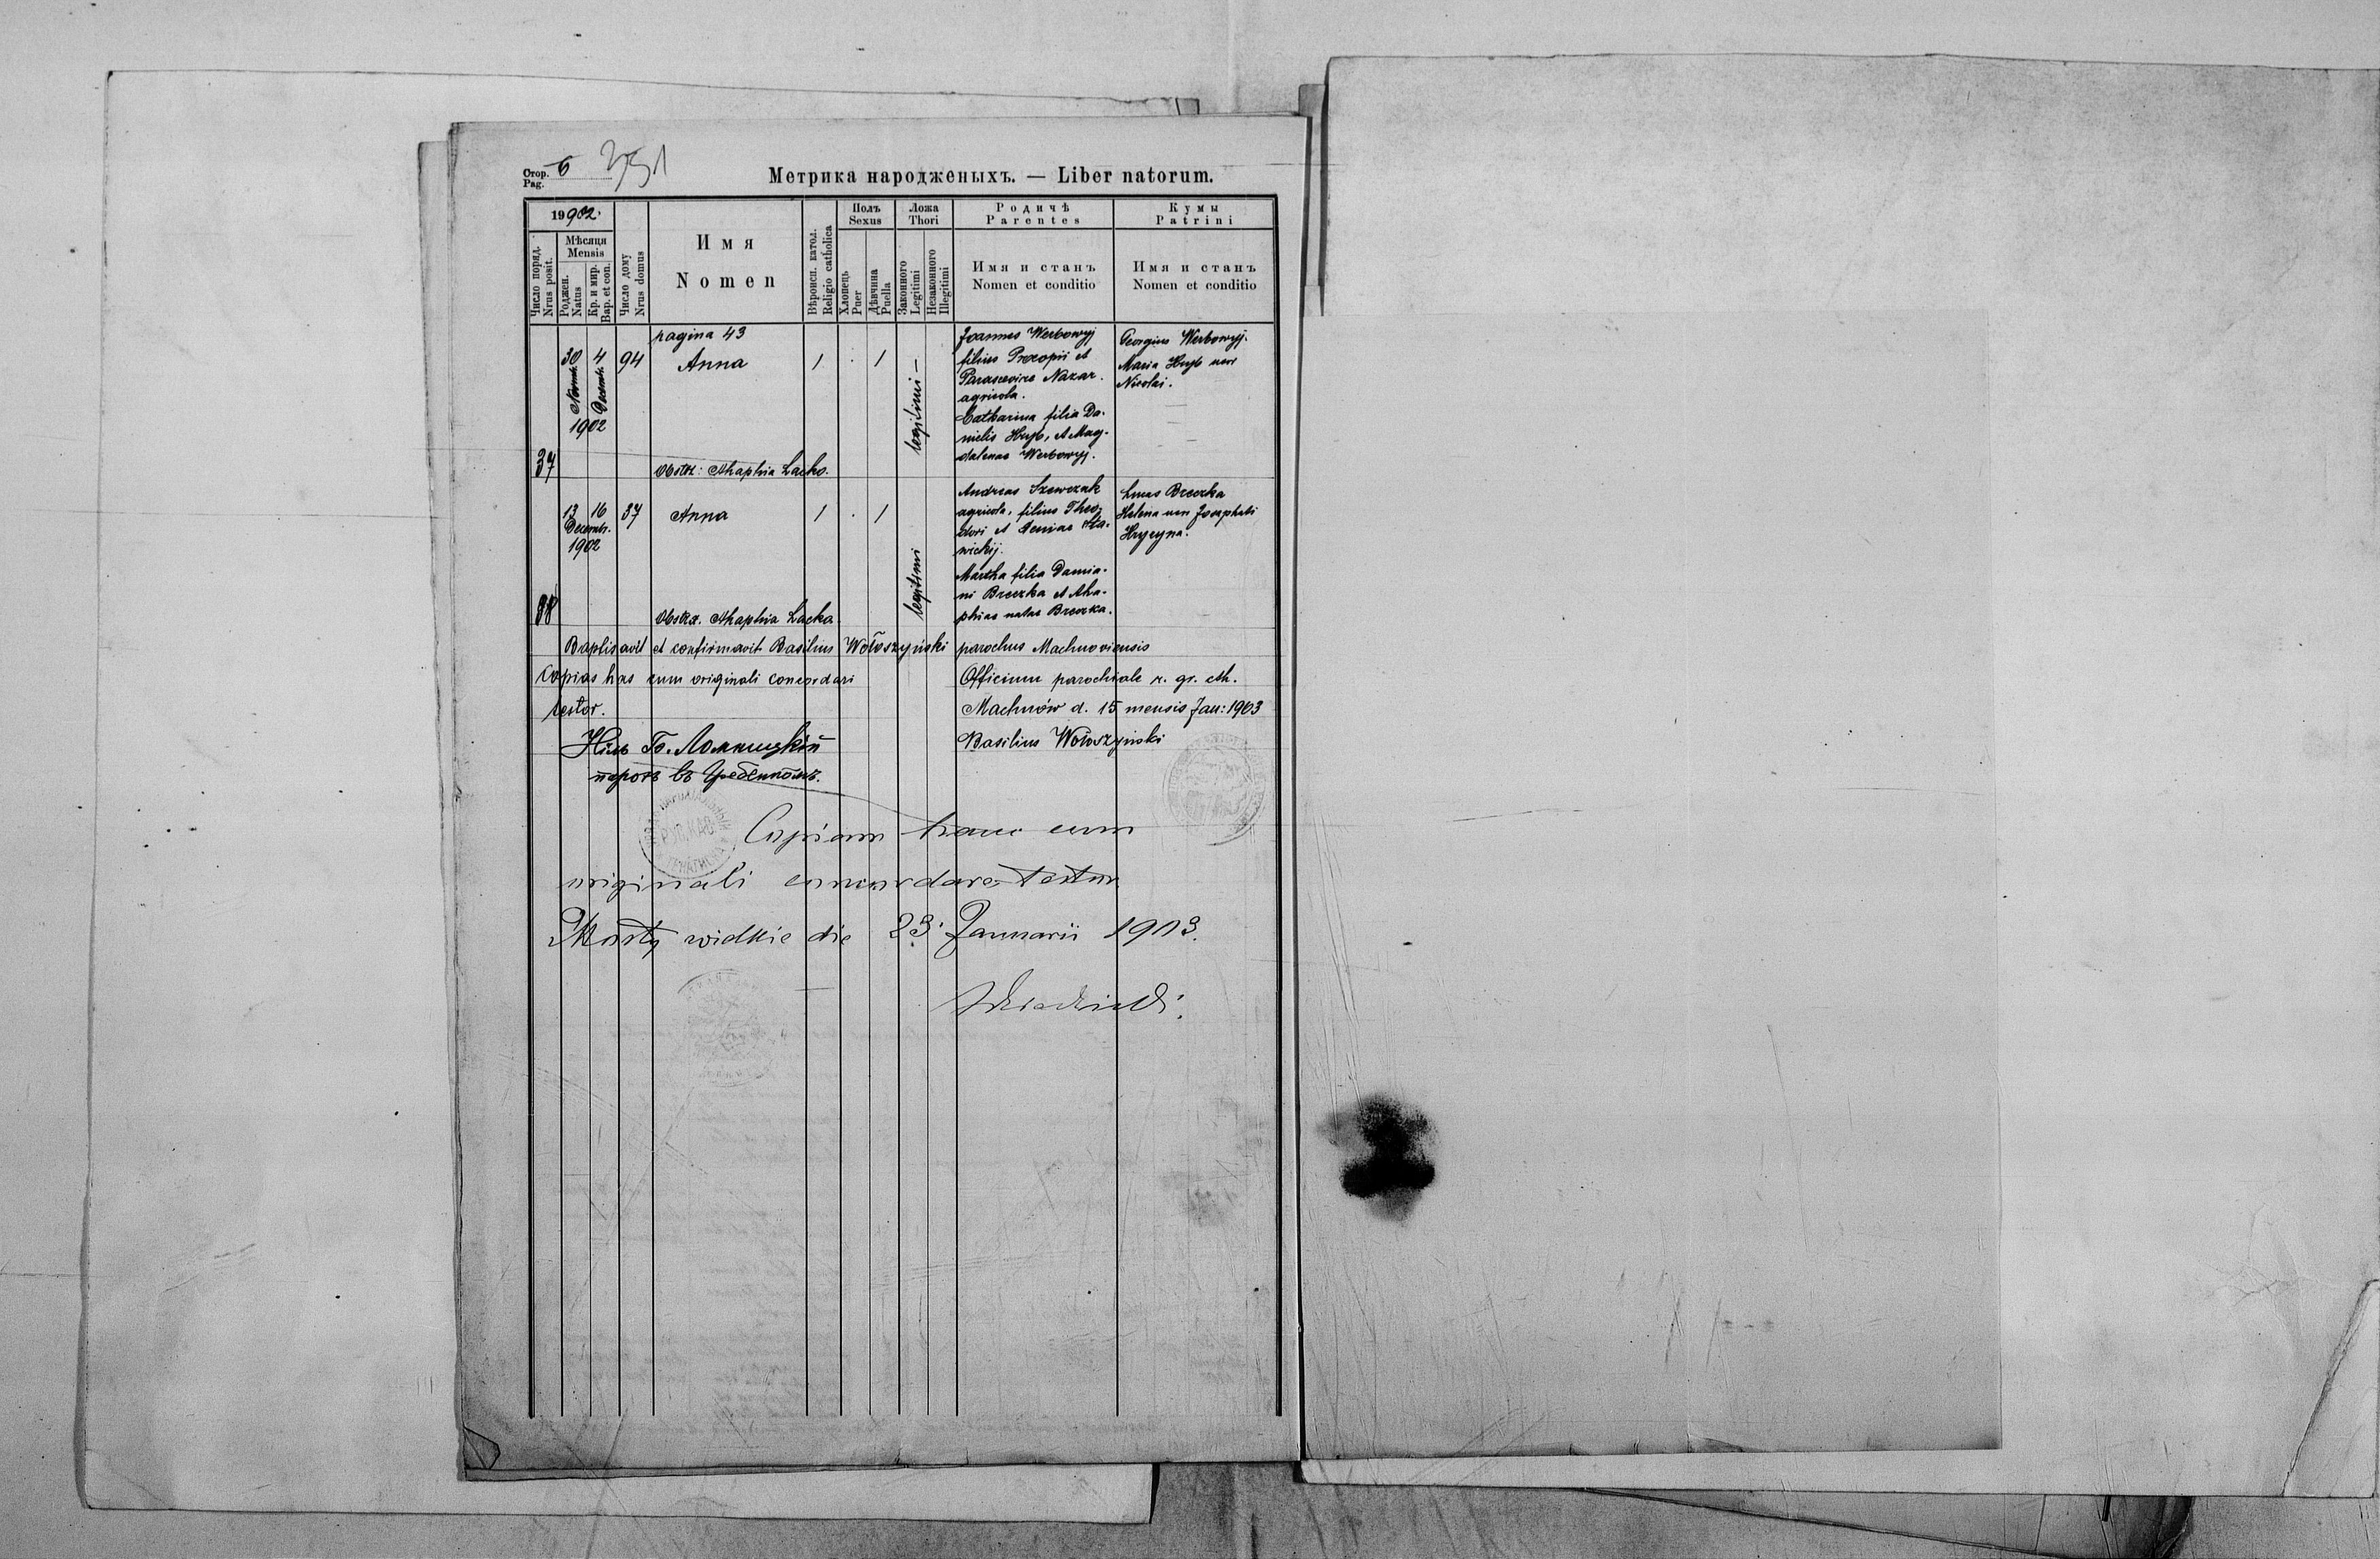 Стор. 6 251
Pag.
Метрика народженыхъ. — Liber natorum.
19902.
Число поряд.
Nrus posit.
Мѣсяця
Mensis
Роджен.
Natus
Кр. и мир.
Bap. et con.
Число дому
Nrus domus
Имя
Nomen
Вѣроисп. катол.
Religio catholica
Полъ
Sexus
Хлопець
Puer
Дѣвчина
Puella
Ложа
Thori
Законного
Legitimi
Незаконного
Illegitimi
Родичѣ
Parentes
Имя и станъ
Nomen et conditio
Кумы
Patrini
Имя и станъ
Nomen et conditio
pagina 43
37
30 4 94 Anna 1 . 1
Novemb. Decemb.
1902
legitimi —
Joannes Werbowyj
filius Procopii et
Parascevire Nazar.
agricola.
Catharina filia Da-
nielis Hryb, et Mag-
dalenae Werbowyj.
Georgius Werbowyj.
Maria Hryb uxor
Nicolai.
Obstr: Ahaphia Lacko.
38
13 16 37 Anna 1 . 1
Decemb.
1902
legitimi
Andreas Szewczak
agricola, filius Theo-
dori et
wickij.
Martha filia Damia-
ni Breczka et Aha-
phiae natae Breczka.
Lucas Breczka
Helena uxor Josaphati
Hrycyna.
Obstr. Ahaphia Lacka
Baptisavit et confirmavit Basilius Wołoszyński parochus Machnoviensis
Copias has cum originali concordari
testor.
Officium parochiale r. gr. cth.
Machnów d. 15 mensis Jan: 1903
Basilius Wołoszyński
Ломницкій
парох въ
Copiam hanc cum
originali concordare testor
Mosty wielkie die 23. Januarii 1903.